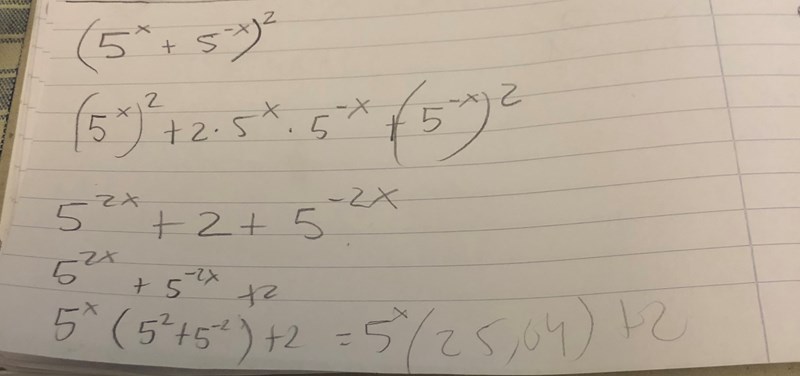 (5^x + 5^-x)^2
(5^x)^2 + 2 · 5^x · 5^-x + (5^-x)^2
5^2x + 2 + 5^-2x
5^2x + 5^-2x + 2
5^x (5^2 + 5^-2) + 2 = 5^x (25,04) + 2